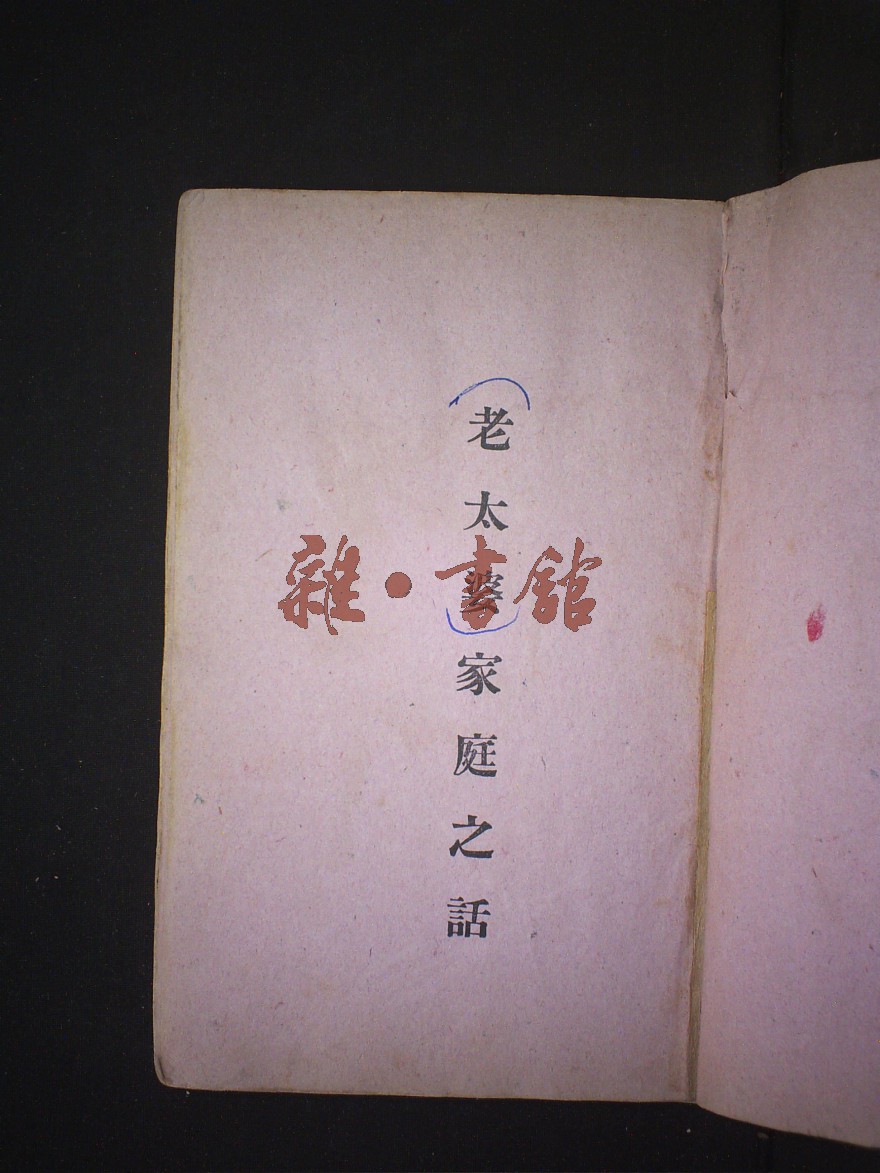 老太婆家庭之話
雜·書館